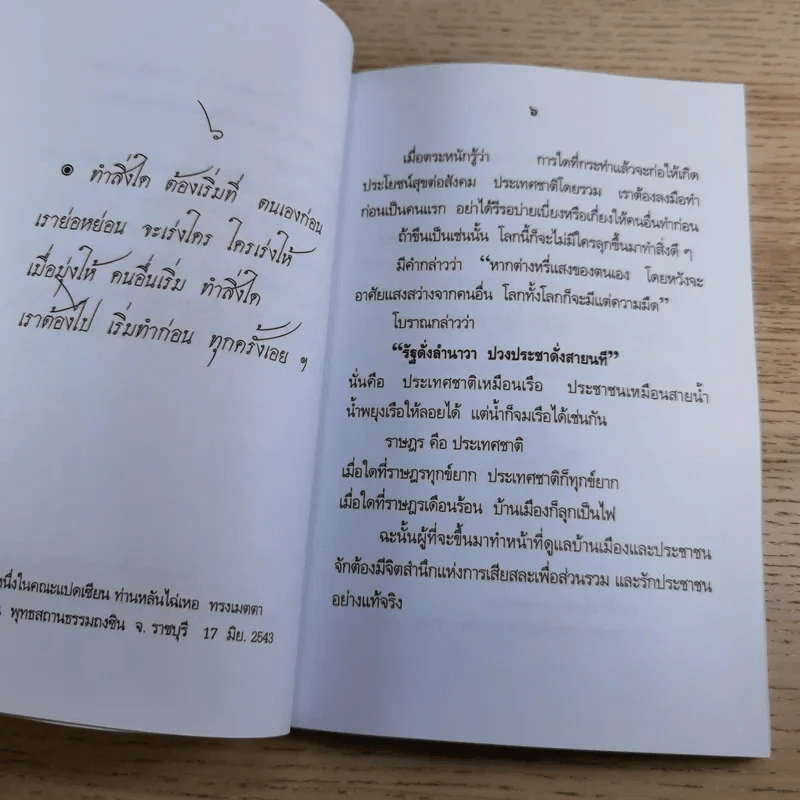 ๖
๏ ทำสิ่งใด ต้องเริ่มที่ ตนเองก่อน
เราย่อหย่อน จะเร่งใคร ใครเร่งให้
เมื่อมุ่งให้ คนอื่นเริ่ม ทำสิ่งใด
เราต้องไป เริ่มทำก่อน ทุกครั้งเอย ฯ
นึ่งในคณะแปดเซียน ท่านหลันไฉ่เหอ ทรงเมตตา
พุทธสถานธรรมถงซิน จ. ราชบุรี 17 มิย. 2543
๖
เมื่อตระหนักรู้ว่า การใดที่กระทำแล้วจะก่อให้เกิด
ประโยชน์สุขต่อสังคม ประเทศชาติโดยรวม เราต้องลงมือทำ
ก่อนเป็นคนแรก อย่าได้รีรอบ่ายเบี่ยงหรือเกี่ยงให้คนอื่นทำก่อน
ถ้าขืนเป็นเช่นนั้น โลกนี้ก็จะไม่มีใครลุกขึ้นมาทำสิ่งดี ๆ
มีคำกล่าวว่า “หากต่างหรี่แสงของตนเอง โดยหวังจะ
อาศัยแสงสว่างจากคนอื่น โลกทั้งโลกก็จะมีแต่ความมืด”
โบราณกล่าวว่า
“รัฐดั่งลำนาวา ปวงประชาดั่งสายนที”
นั่นคือ ประเทศชาติเหมือนเรือ ประชาชนเหมือนสายน้ำ
น้ำพยุงเรือให้ลอยได้ แต่น้ำก็จมเรือได้เช่นกัน
ราษฎร คือ ประเทศชาติ
เมื่อใดที่ราษฎรทุกข์ยาก ประเทศชาติก็ทุกข์ยาก
เมื่อใดที่ราษฎรเดือนร้อน บ้านเมืองก็ลุกเป็นไฟ
ฉะนั้นผู้ที่จะขึ้นมาทำหน้าที่ดูแลบ้านเมืองและประชาชน
จักต้องมีจิตสำนึกแห่งการเสียสละเพื่อส่วนรวม และรักประชาชน
อย่างแท้จริง